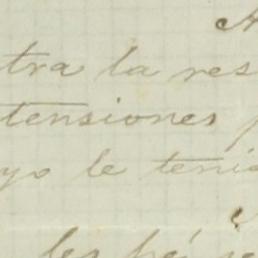 tra la res
tensiones
yo le teni
les